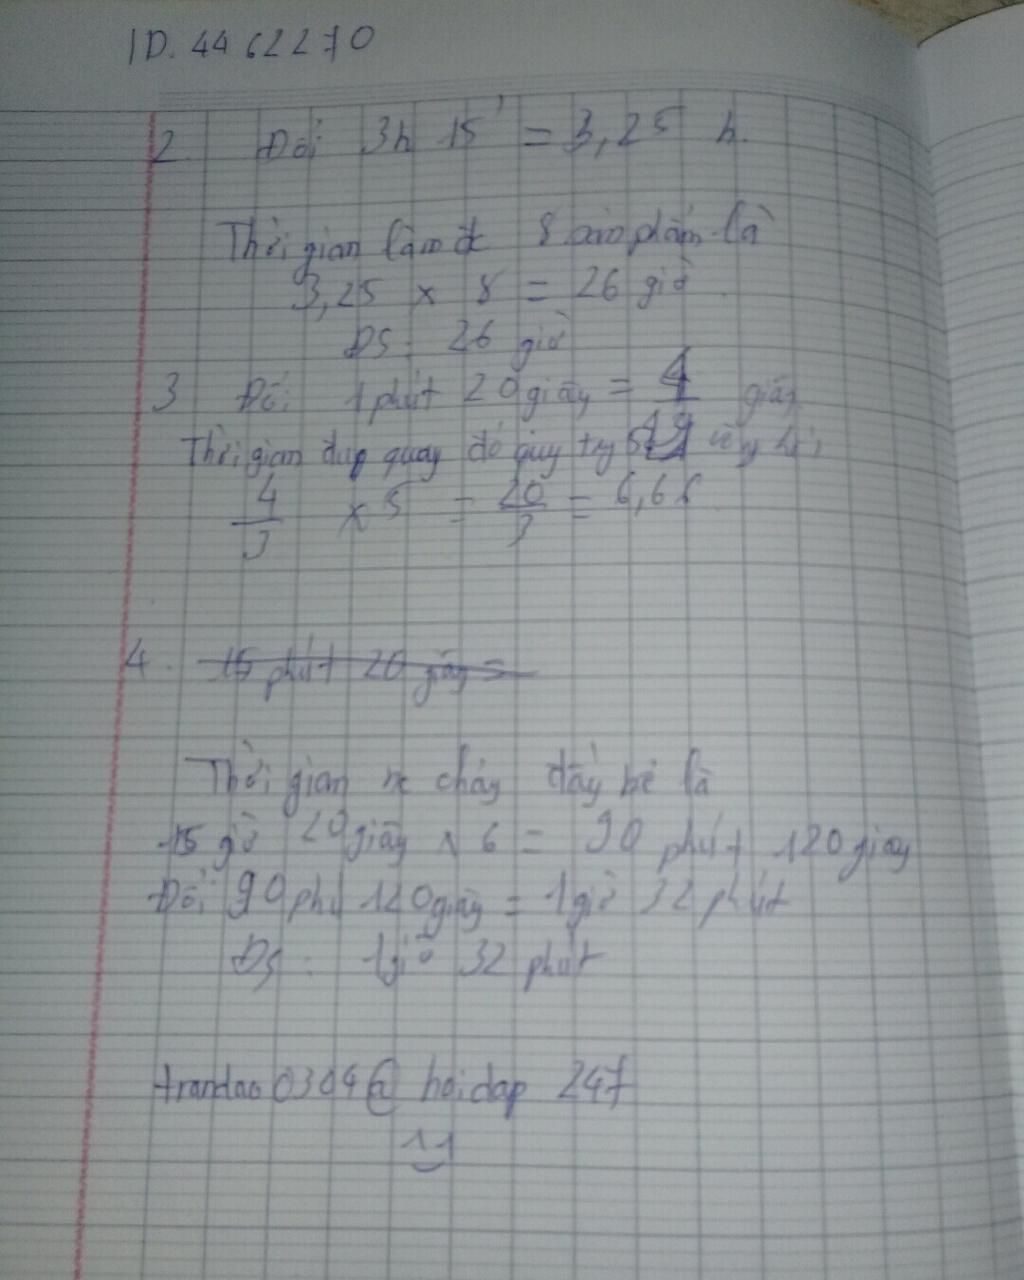 ID. 4462270
2. Đổi 3h 15' = 3,25 h.
Thời gian làm đc 8 sản phẩm là
3,25 x 8 = 26 giờ
ĐS: 26 giờ
3 Đổi 1 phút 20 giây = 4 giây
Thời gian quay
4/3 x 5 = 20/3 = 6,66
4. 15 phút 20 giây =
Thời gian chảy đầy bể là
15 giờ 20 giây x 6 = 90 phút 120 giây
Đổi 90 phú 120 giây = 1 giờ 32 phút
ĐS: 1 giờ 32 phút
trandao0304@ hoidap 247